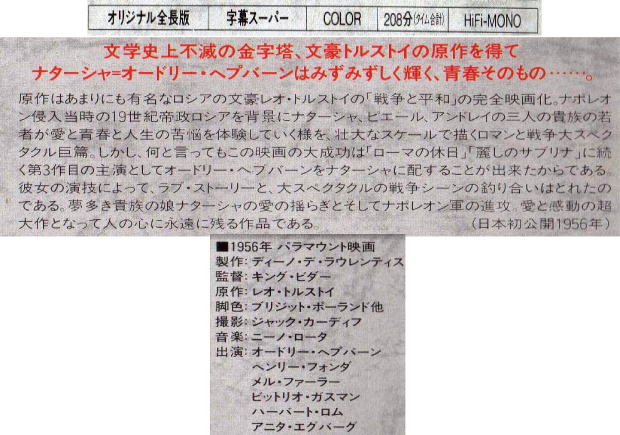 オリジナル全長版 字幕スーパー COLOR 208分(タイム合計) HiFi-MONO
文学史上不滅の金字塔、文豪トルストイの原作を得て
ナターシャ=オードリー・ヘプバーンはみずみずしく輝く、青春そのもの……。
原作はあまりにも有名なロシアの文豪レオ・トルストイの「戦争と平和」の完全映画化。ナポレオ
ン侵入当時の19世紀帝政ロシアを背景にナターシャ、ピエール、アンドレイの三人の貴族の若
者が愛と青春と人生の苦悩を体験していく様を、壮大なスケールで描くロマンと戦争大スペク
タクル巨篇。しかし、何と言ってもこの映画の大成功は「ローマの休日」「麗しのサブリナ」に続
く第3作目の主演としてオードリー・ヘプバーンをナターシャに配することが出来たからである。
彼女の演技によって、ラブ・ストーリーと、大スペクタクルの戦争シーンの釣り合いはとれたの
である。夢多き貴族の娘ナターシャの愛の揺らぎとそしてナポレオン軍の進攻。愛と感動の超
大作となって人の心に永遠に残る作品である。 (日本初公開1956年)
■1956年 パラマウント映画
製作:ディーノ・デ・ラウレンティス
監督:キング・ビダー
原作:レオ・トルストイ
脚色:ブリジット・ボーランド他
撮影:ジャック・カーディフ
音楽:ニーノ・ロータ
出演:オードリー・ヘプバーン
ヘンリー・フォンダ
メル・ファーラー
ビットリオ・ガスマン
ハーバート・ロム
アニタ・エグバーグ